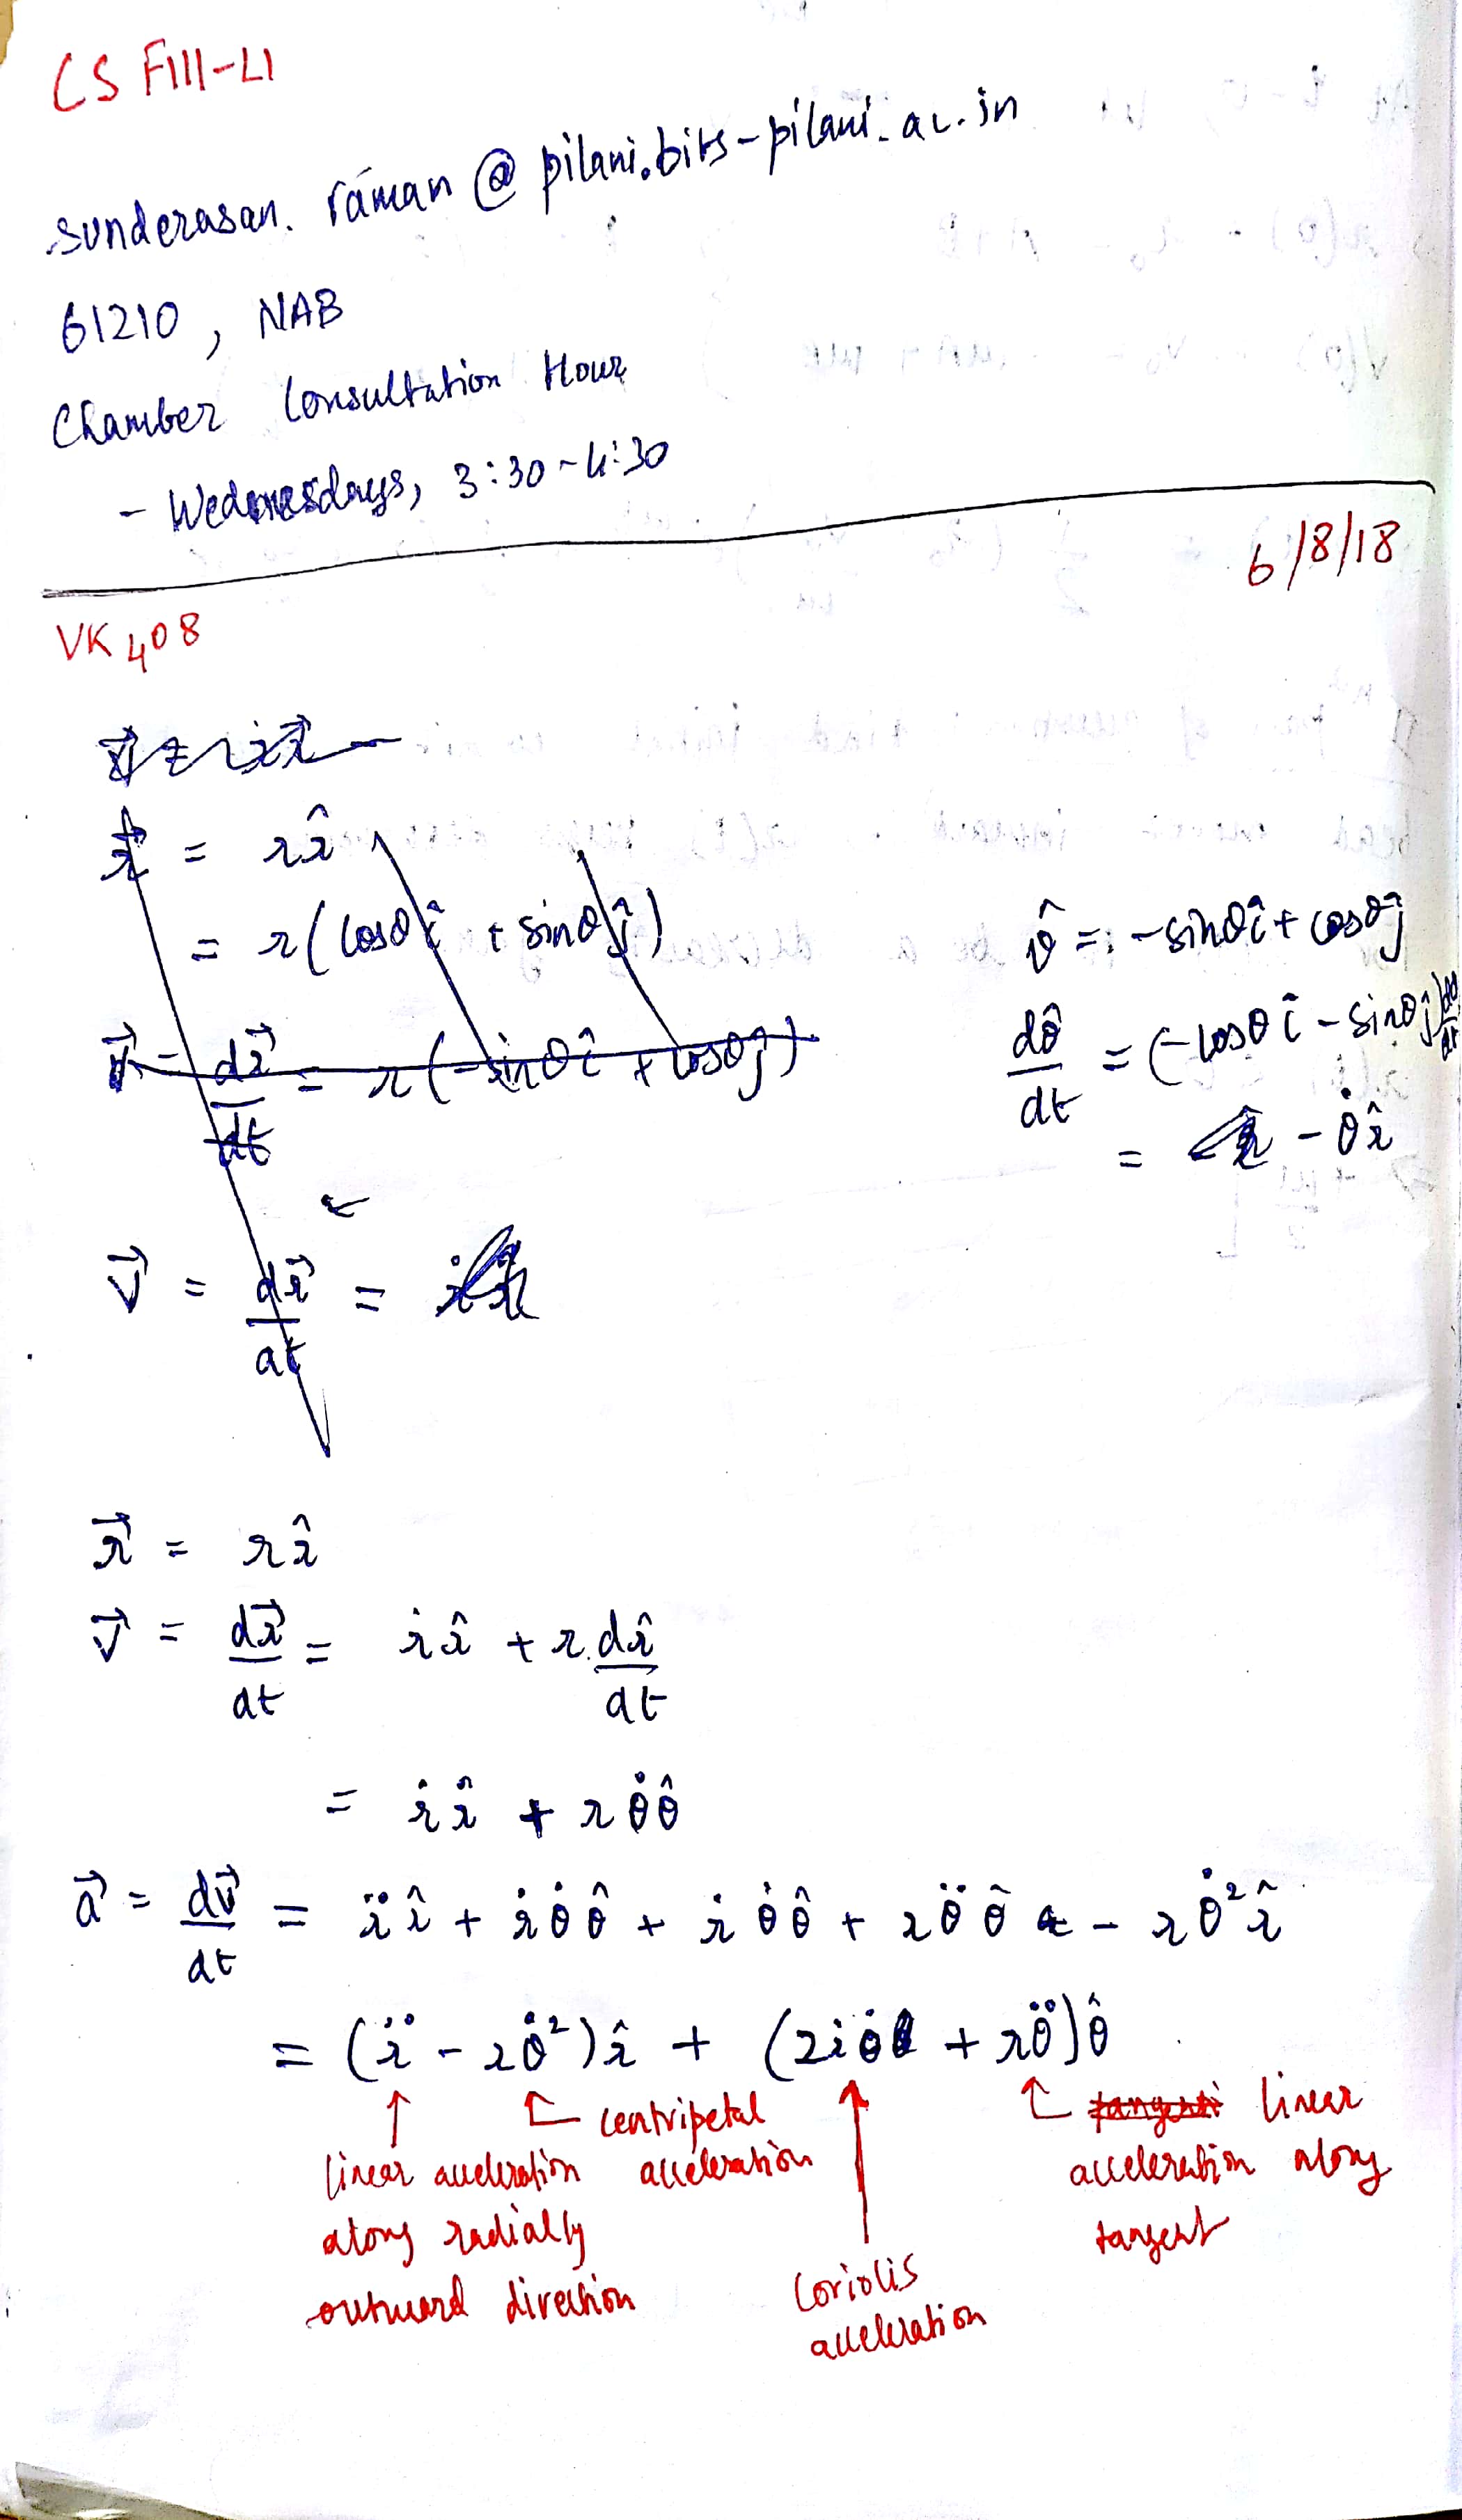 CS F111-L1
sunderasan.raman@pilani.bits-pilani.ac.in
61210, NAB
Chamber Consultation Hour
- Wednesdays, 3:30-4:30
6/8/18
VK 408
r⃗ = r r̂
= r(cosθ î + sinθ ĵ)
v⃗ = dr⃗/dt = r(-sinθ î + cosθ ĵ)
θ̂ = -sinθ î + cosθ ĵ
dθ̂/dt = (-cosθ î - sinθ ĵ) dθ/dt
= - θ̇ r̂
v⃗ = dr⃗/dt =
r⃗ = r r̂
v⃗ = dr⃗/dt = ṙ r̂ + r. dr̂/dt
= ṙ r̂ + r θ̇ θ̂
a⃗ = dv⃗/dt = r̈ r̂ + ṙ θ̇ θ̂ + ṙ θ̇ θ̂ + r θ̈ θ̂ - r θ̇² r̂
= (r̈ - r θ̇²) r̂ + (2 ṙ θ̇ + r θ̈) θ̂
↑ linear acceleration along radially outward direction
centripetal acceleration
↑ Coriolis acceleration
linear acceleration along tangent